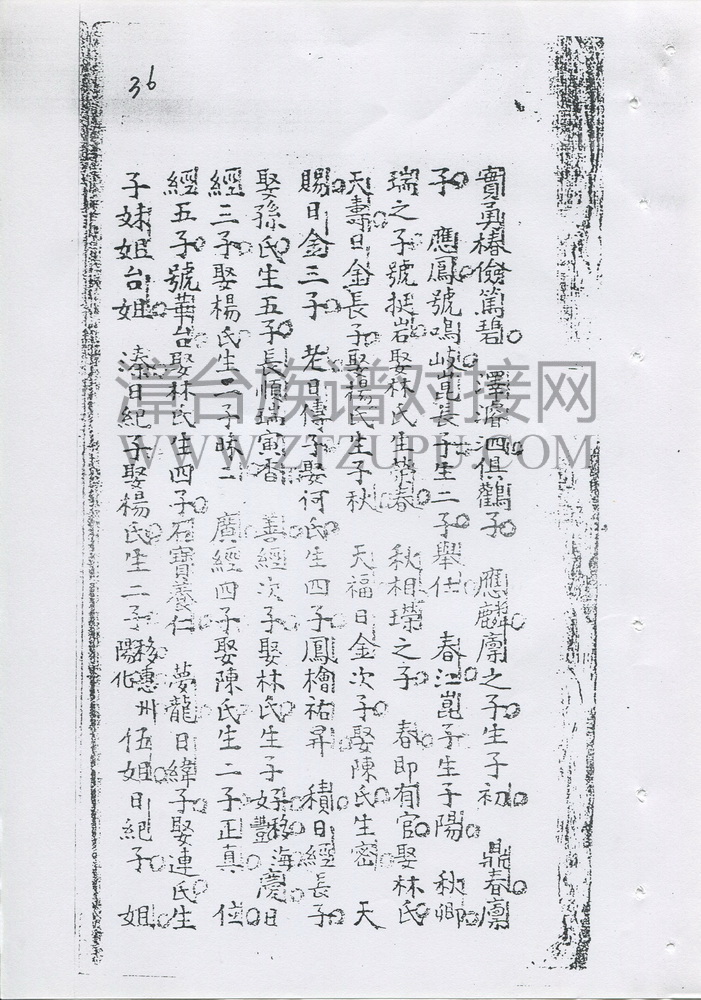 36
實勇椿俊篤碧。 澤濬泗俱鸛子 應麟廩之子生子初。 鼎春廩
子。 應鳳號鳴岐崑長子生二子舉仕。 春江崑子生子陽。 秋卿
瑞之子號挺岩娶林氏生榮春。 秋相瑮之子。 春即有官娶林氏
天壽日金長子娶楊氏生子秋 天福日金次子娶陳氏生密。 天
賜日金三子。 老日傳子娶何氏生四子鳳檜祐昇。 積日經長子
娶孫氏生五子長順瑞寅香 善經次子娶林氏生子好豔移海。慶日
經三子娶楊氏生二子昧二 廣經四子娶陳氏生二子正真。 位
經五子號華台娶林氏生四子石寶養仁 夢龍日緯子娶連氏生
子妹姐台姐。 溱日紀子娶楊氏生二子移惠州陽化 伍姐日紀子 姐
漳台族谱对接网
WWW.ZTZUPU.COM